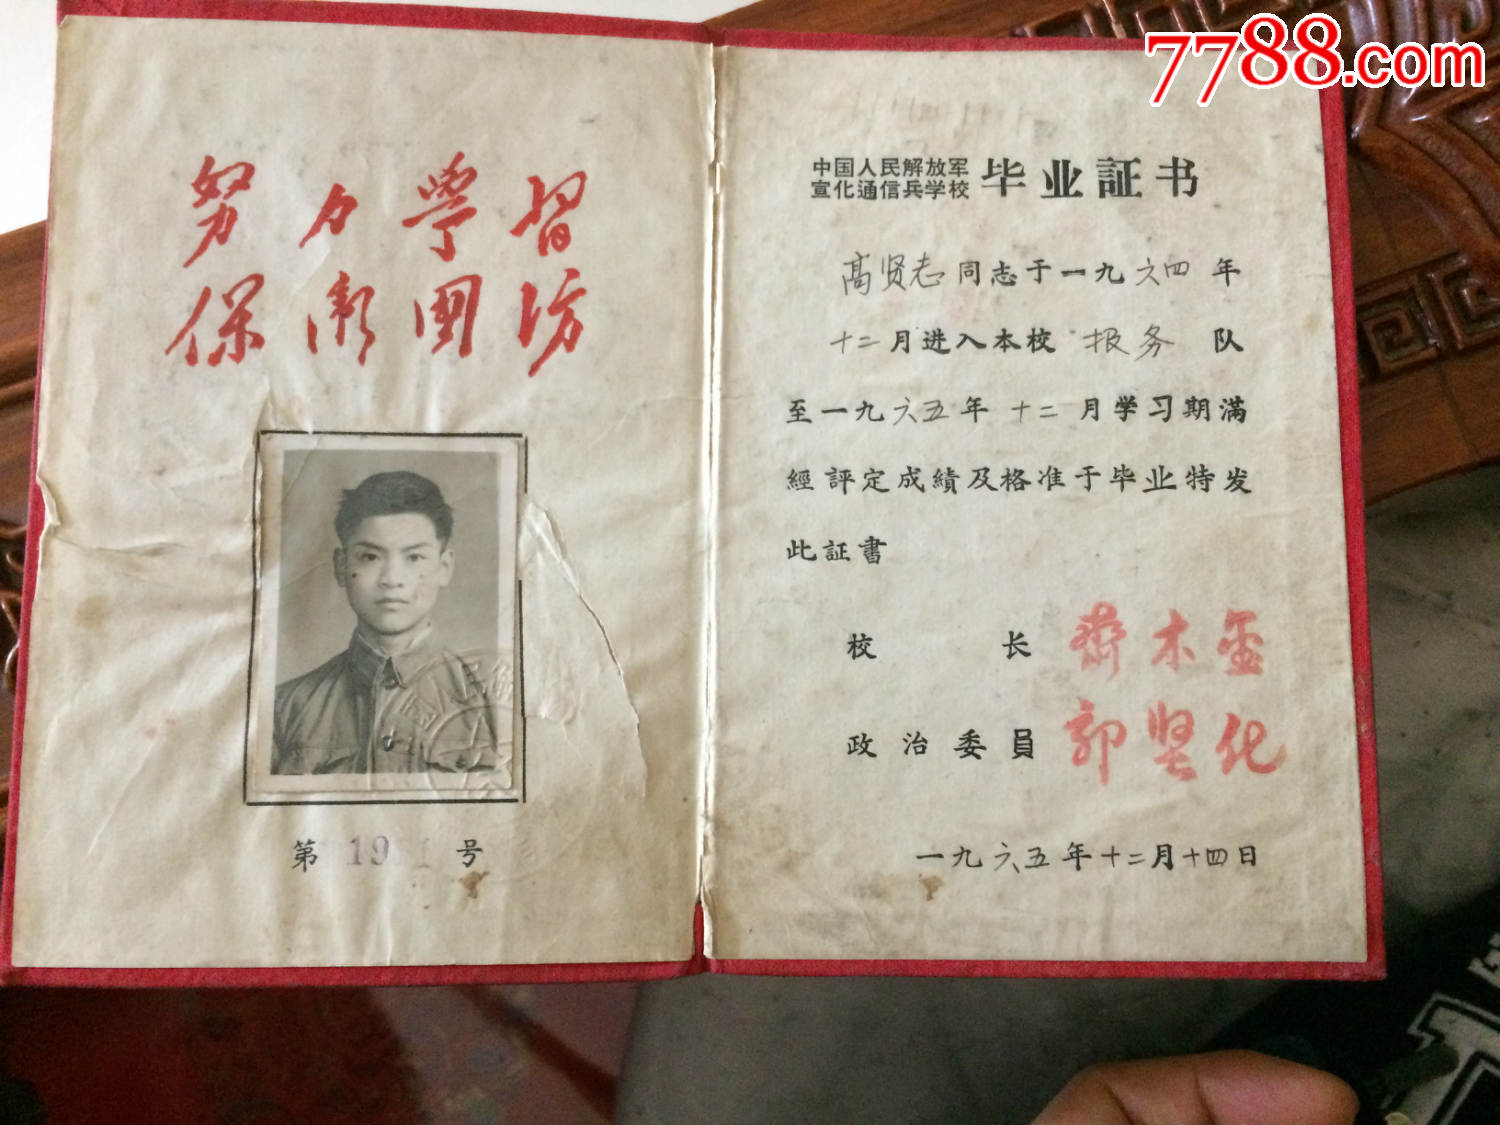 7788.com
努力学習
保衛國防
第 19 1 号
中国人民解放军
宣化通信兵学校 毕业証书
高贤志同志于一九六四年
十二月进入本校报务队
至一九六五年十二月学习期滿
經評定成績及格准于毕业特发
此証書
校长 齊木金
政治委員 郭坚化
一九六五年十二月十四日